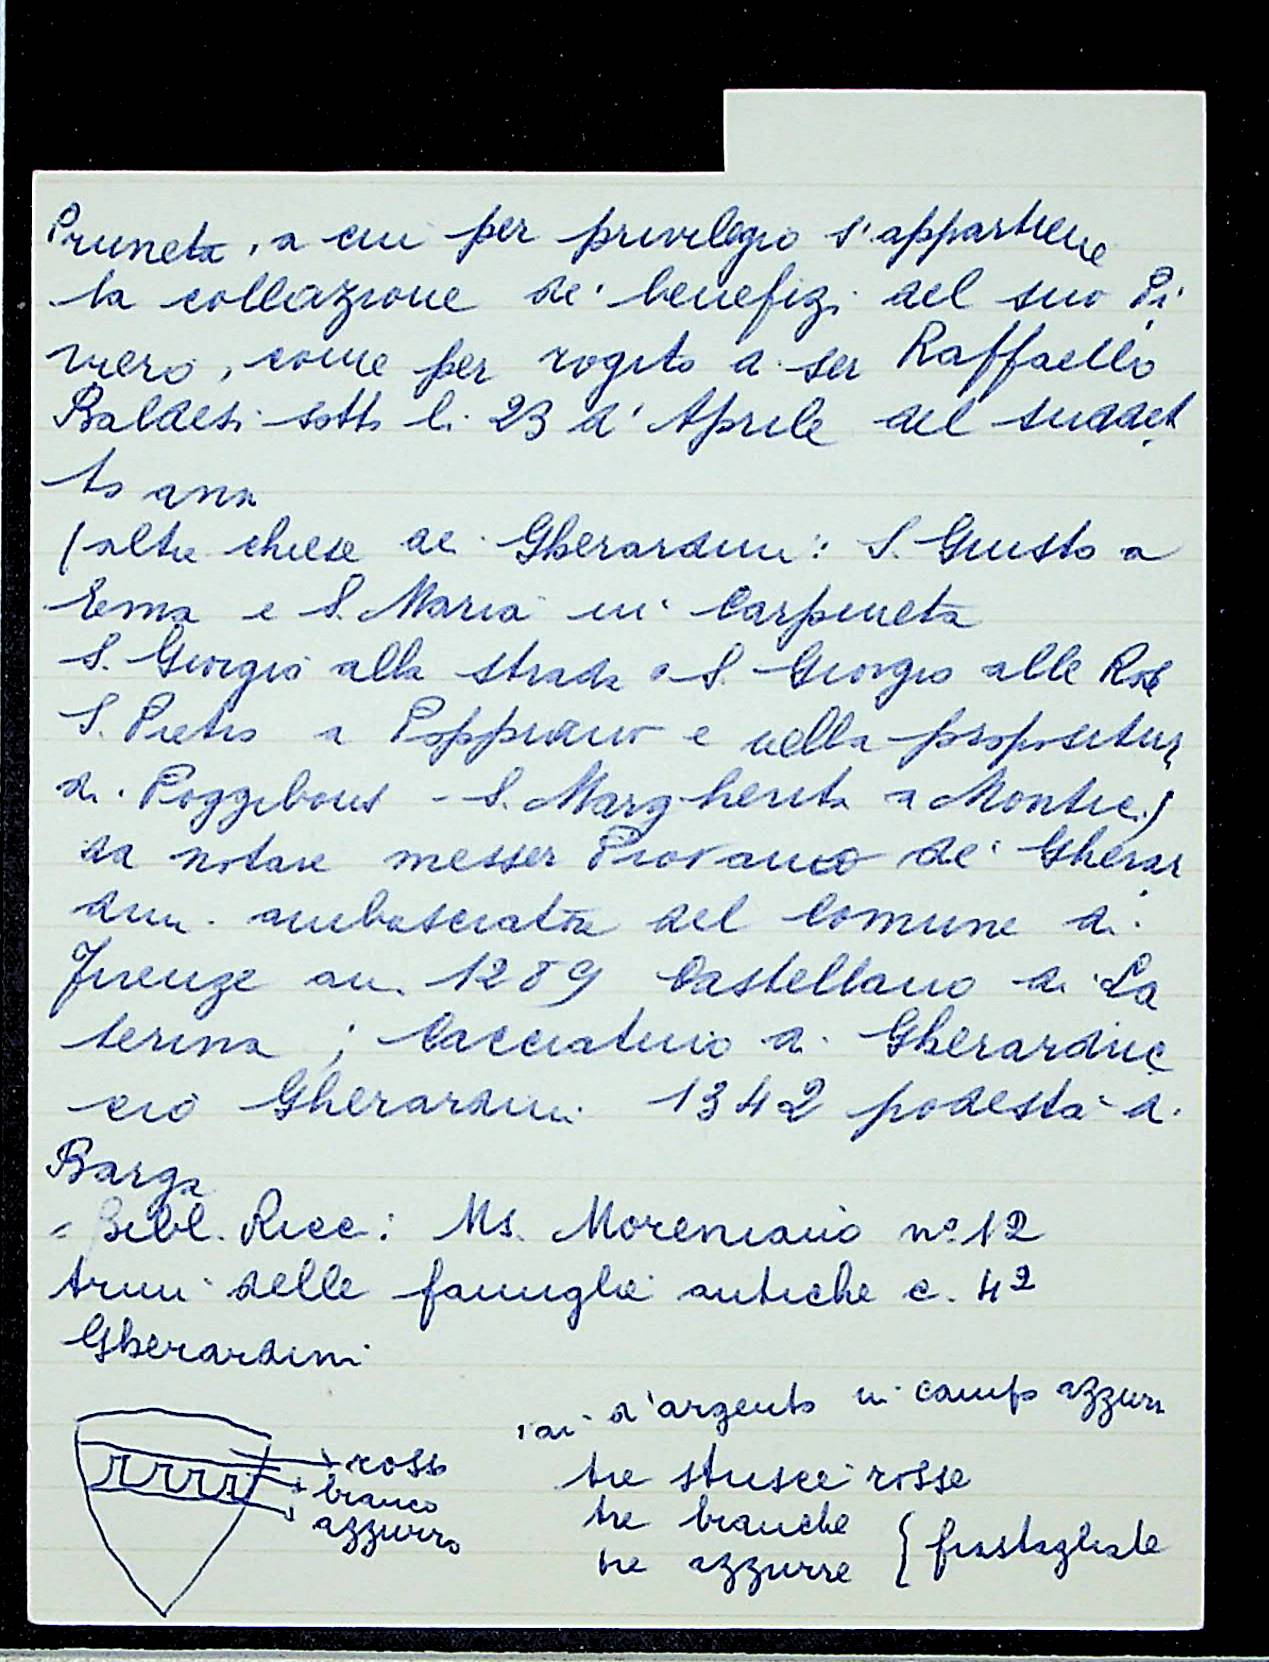 Pruneta, a cui per privilegio s'appartiene
la collazione de' benefizi del suo Pi
viero, come per rogito a ser Raffaello
Baldesi sotto li 23 d'Aprile del suddet
to ann
(altre chiese dei Gherardini: S. Giusto a
Ema e S. Maria in Carpineta
S. Giorgio alla strada o S. Giorgio alle Rose
S. Pietro a Poppiano e nella propositura
di Poggibonsi - S. Margherita a Montici)
da notare messer Piovano de' Gherar
dini ambasciatore del Comune di
Firenze an. 1289 Castellano di La
terina; Cacciatino di Gherarduc
cio Gherardini 1342 podestà di
Barga
= Bibl. Ricc: Ms. Moreniano n° 12
Armi delle famiglie antiche c. 42
Gherardini
d'argento in campo azzurro
rosso tre strisce rosse
bianco tre bianche
azzurro tre azzurre { frastagliate